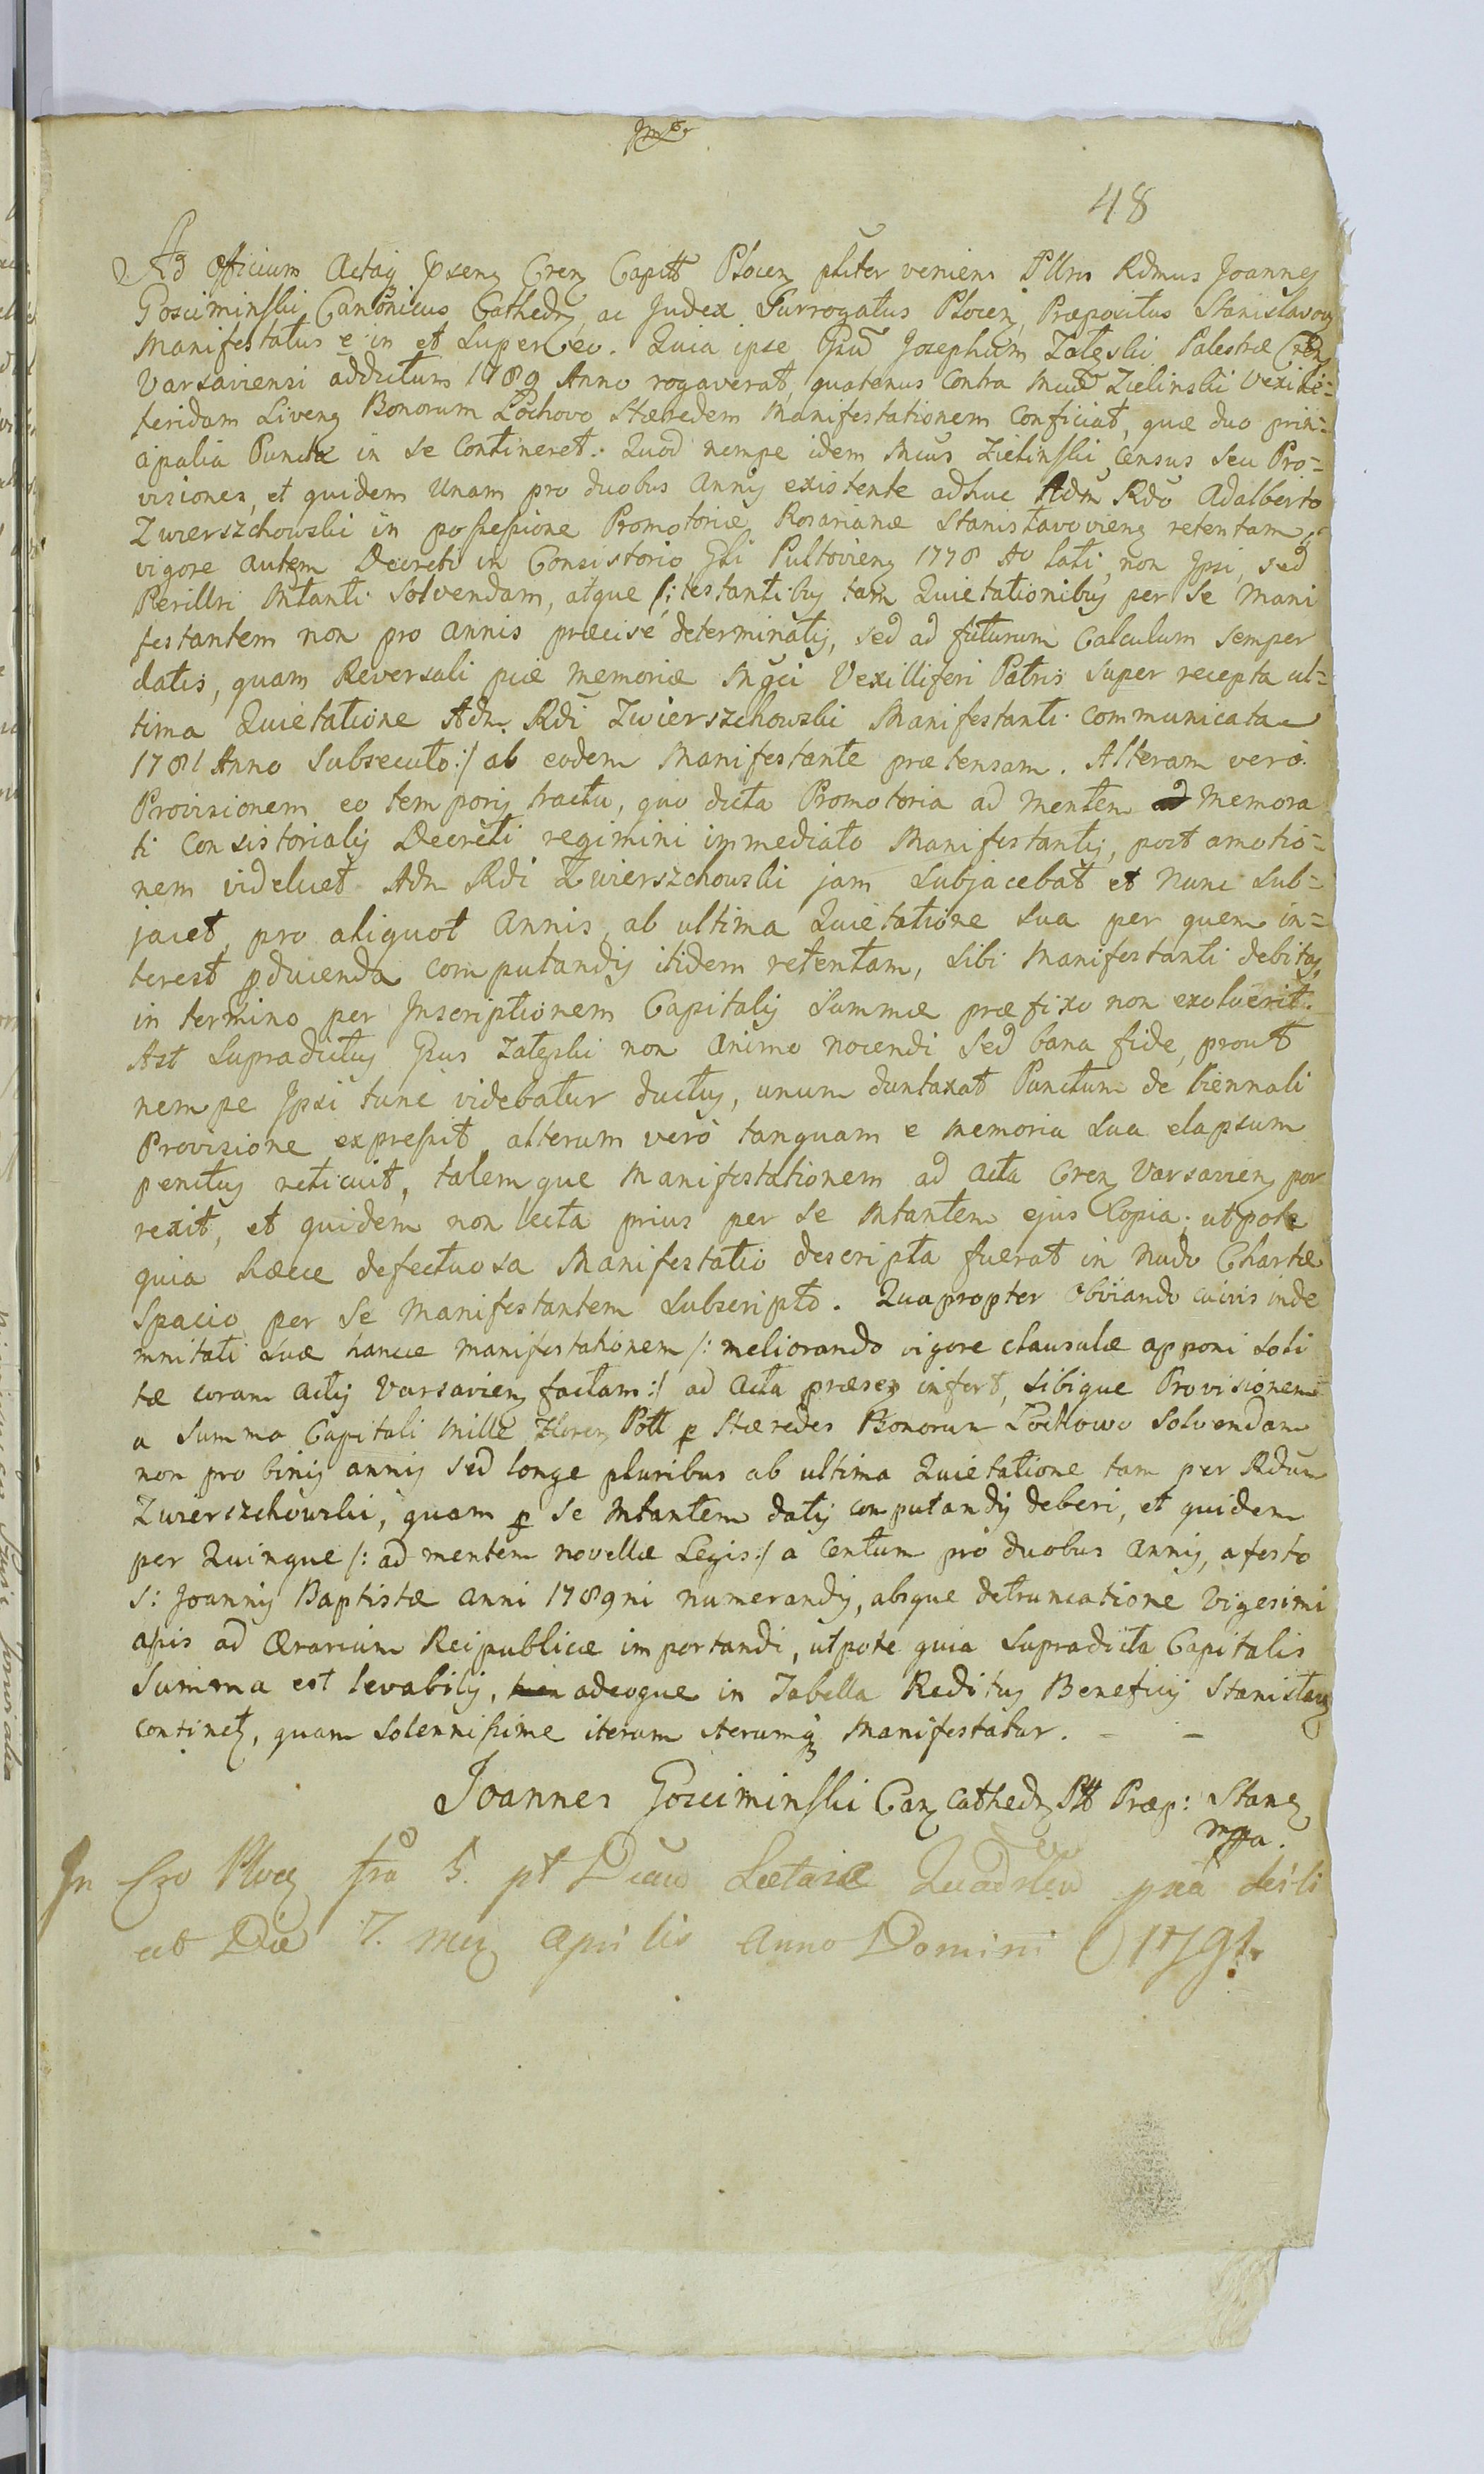 48
Ad Officium Actaq Pnseng Creng Capitt Plocen pliter veniens Pllris Rdmus Joannes
Gosciminski Canonicus Cathedr ac Judex Surrogatus Plocen, Præpositus Stanislavov
Manifestatus e in et super eo. Quia ipse Gsũ Josephum Zateski Palestræ Cren
Varsaviensi addictum 1789 Anno rogaverat, quatenus contra Mcũ Zielinski Vexili=
feridam Liveng Bonorum Łochovo Hæredem Manifestationem conficiat, quæ duo prin=
cipalia Puncta in se contineret. Quod nempe idem Mcus Zielinski, census seu Pro=
visiones, et quidem Unam pro duobus annis existente adhuc Adm Rdo Adalberto
Zwierszchowski in possessione Promotoriæ Rosarianæ Stanisłavovieng retentam,
vigore autem Decreti in Consistorio Gli Pultovieng 1778 Ao lati, non Ipsi, sed
Perillri Mtanti solvendam, atque /: testantibus tam Quietationibus per se Mani
festantem non pro annis præcise determinatis, sed ad futurum Calculum semper
datis, quam Reversali piæ memoriæ Mgci Vexilliferi Patris super recepta ul=
tima Quietatione Adm Rdi Zwierszchowski Manifestanti communicata
1781 Anno subsecuto :/ ab eodem Manifestante prætensam. Alteram vero
Provisionem eo temporis tractu, quo dicta Promotoria ad mentem memora
ti Consistorialis Decreti regimini immediato Manifestantis, post amotio=
nem videlicet Adm Rdi Zwierszchowski jam subjacebat et nunc sub=
jacet, pro aliquot annis, ab ultima Quietatione sua per quem in=
terest pducenda computandis itidem retentam, sibi Manifestanti debitas,
in termino per Inscriptionem Capitalis Summæ præfixo non exolverit.
Ast supradictus Gsus Zateski non animo nocendi sed bana fide, prout
nempe Ipsi tunc videbatur ductus, unum duntaxat Punctum de biennali
Provisione expressit, alterum verò tanquam e memoria sua elapsum
penitus reticuit, talemque Manifestationem ad Acta Cren Varsavien por
rexit, et quidem non lecta prius per se Mtantem ejus Copia; utpote
quia hæcce defectuosa Manifestatio descripta fuerat in nudo Chartæ
spacio per se Manifestantem subscripto. Quapropter obviando cuivis inde
mnitati suæ hancce manifestationem /: meliorando vigore clausulæ apponi soli
tæ coram actis Varsavien factam :/ ad Acta præsen infert, sibique Provisionem
a summa Capitali mille Floren Poll p Hæredes Bonorum Łochowo solvendam
non pro binis annis sed longe pluribus ab ultima Quietatione tam per Rdum
Zwierszchowski, quam p se Mtantem datis computandis deberi, et quidem
per Quinque /: ad mentem novellæ Legis :/ a Centum pro duobus annis, a festo
S: Joannis Baptistæ anni 1789ni numerandis, absque detruncatione Vigesimi
apis ad Ærarium Reipublicæ importandi, utpote quia supradicta Capitalis
Summa est levabilis, adeoque in Tabella Reditus Beneficij Stanislav
continet, quam solennissime iterum iterumq manifestatur. - -
Joannes Gosciminski Can Cathedr Płł Præp: Stanis
mppa.
In Cro Ploc fra 5. pt Dicam Lætare Quadrlem
Die 7. Mens Aprilis Anno Domini 1791.